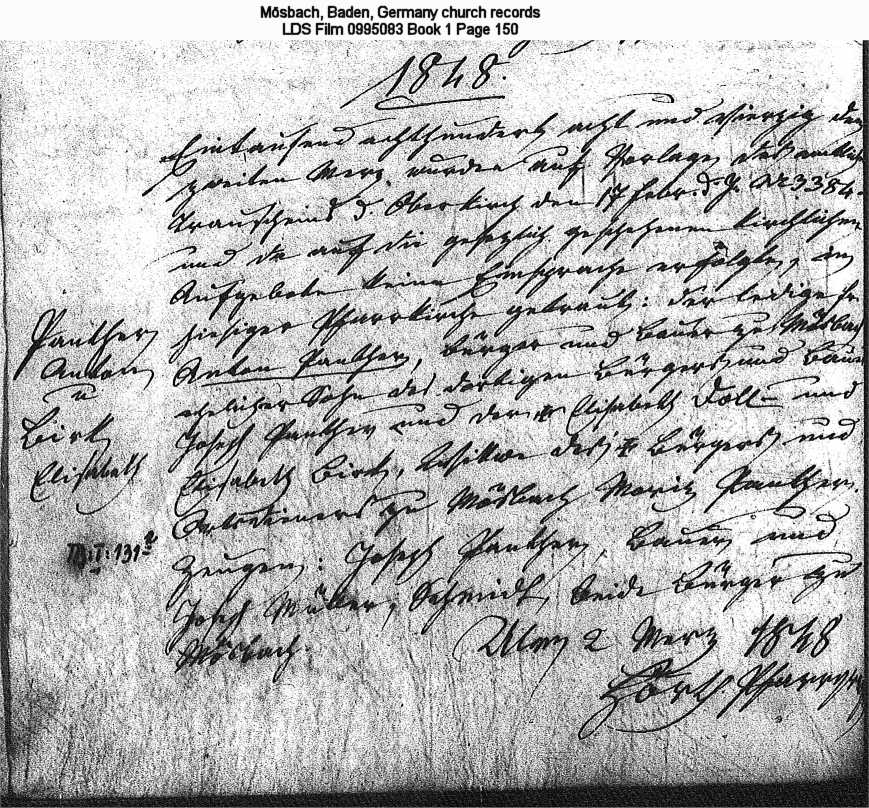 Mösbach, Baden, Germany church records
LDS Film 0995083 Book 1 Page 150
1848.
Eintausend achthundert acht und vierzig den
zweiten Merz wurden auf Vorlage des amtlich
Trauscheins d. Oberkirch den 17 Febr. d. J. Nr 3384.
und da auf die gesetzlich geschehenen kirchlichen
Aufgebote keine Einsprache erfolgte, in
hiesiger Pfarrkirche getraut: der ledige
Anton Panther, Bürger und Bauer zu Mösbach
ehelicher Sohn des dortigen Bürgers und Bauer
Joseph Panther und der Elisabeth Doll – und
Elisabeth Birk, Wittwe des Bürgers und
zu Mösbach Moritz Panther.
Zeugen: Joseph Panther, Bauer und
Joseph Müller, Schmidt, beide Bürger zu
Mösbach.
Ulm 2 Merz 1848
Pfarrv
Panther
Anton
u
Birk
Elisabeth
B: I: 131